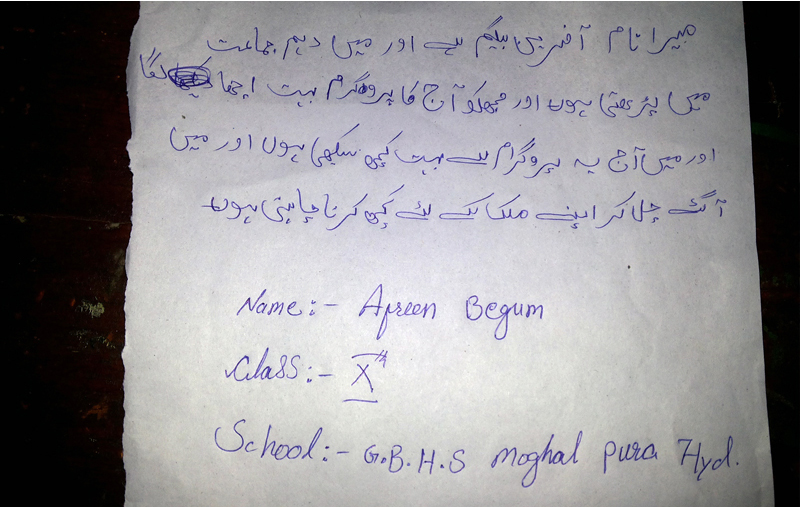 میرا نام آفرین بیگم ہے اور میں دہم جماعت
میں پڑھتی ہوں اور مجھکو آج کا پروگرام بہت اچھا لگا
اور میں آج یہ پروگرام سے بہت کچھ سکھی ہوں اور میں
آگے چل کر اپنے ملک کے لئے کچھ کرنا چاہتی ہوں
Name:- Afreen Begum
Class:- Xth
School:- G.B.H.S Moghal pura Hyd.